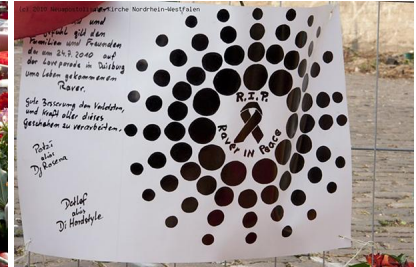 (c) 2010 Neuapostolische Kirche Nordrhein-Westfalen
und
gilt den
Familien und Freunden
der am 24.7.2010 auf
der Loveparade in Duisburg
ums Leben gekommenen
Raver.
Gute Besserung den Verletzten,
und Kraft alles dieses
Geschehen zu verarbeiten.
Potzi
alias
Dj Rosena
Detlef
alias
Di Hardstyle
R.I.P.
Raver IN Peace